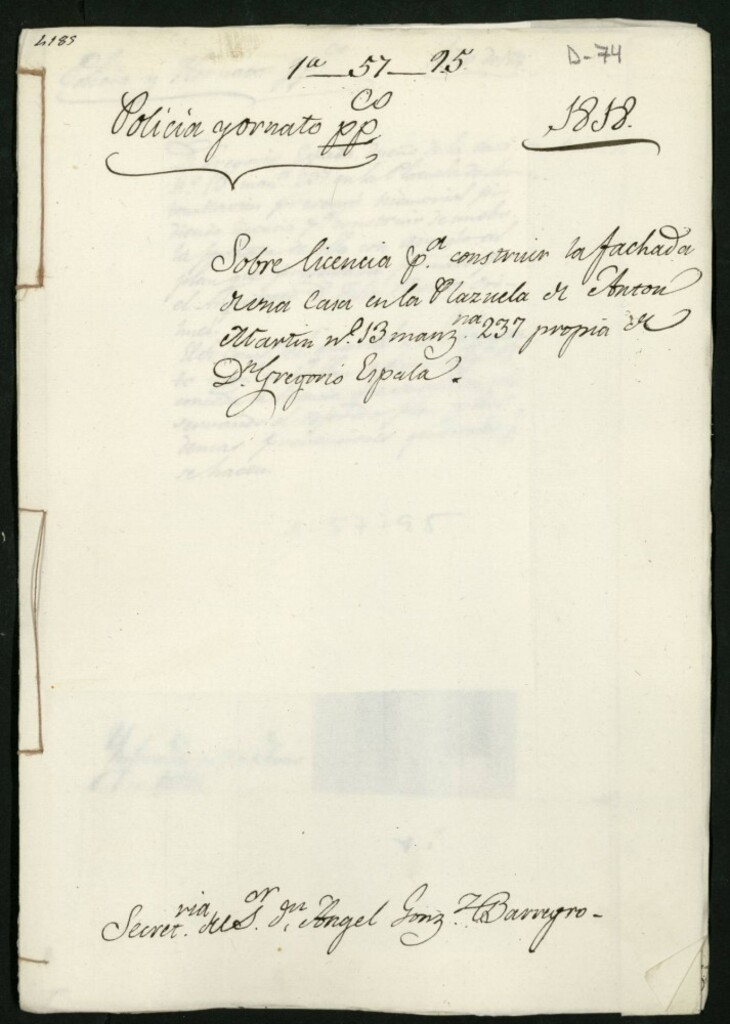 4185
1ª_57_95
D-74
Policia y ornato ppᶜᵒ
1818.
Sobre licencia p.ª construir la fachada
de una Casa en la Plazuela de Anton
Martin n.º 13 manz.ⁿᵃ 237 propia de
D.ⁿ Gregorio Espala.
Secret.ʳⁱᵃ del S.ᵒʳ D.ⁿ Angel Gonz.ᶻ Barreyro-